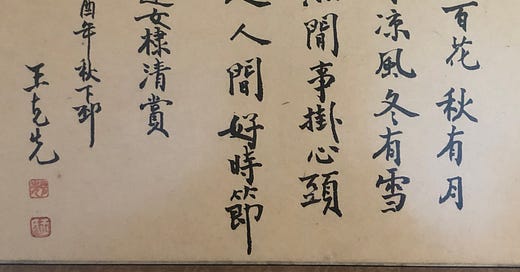 百花秋有月
凉風冬有雪
閒事掛心頭
人間好時節
女棣清賞
酉年秋下邳
王克先